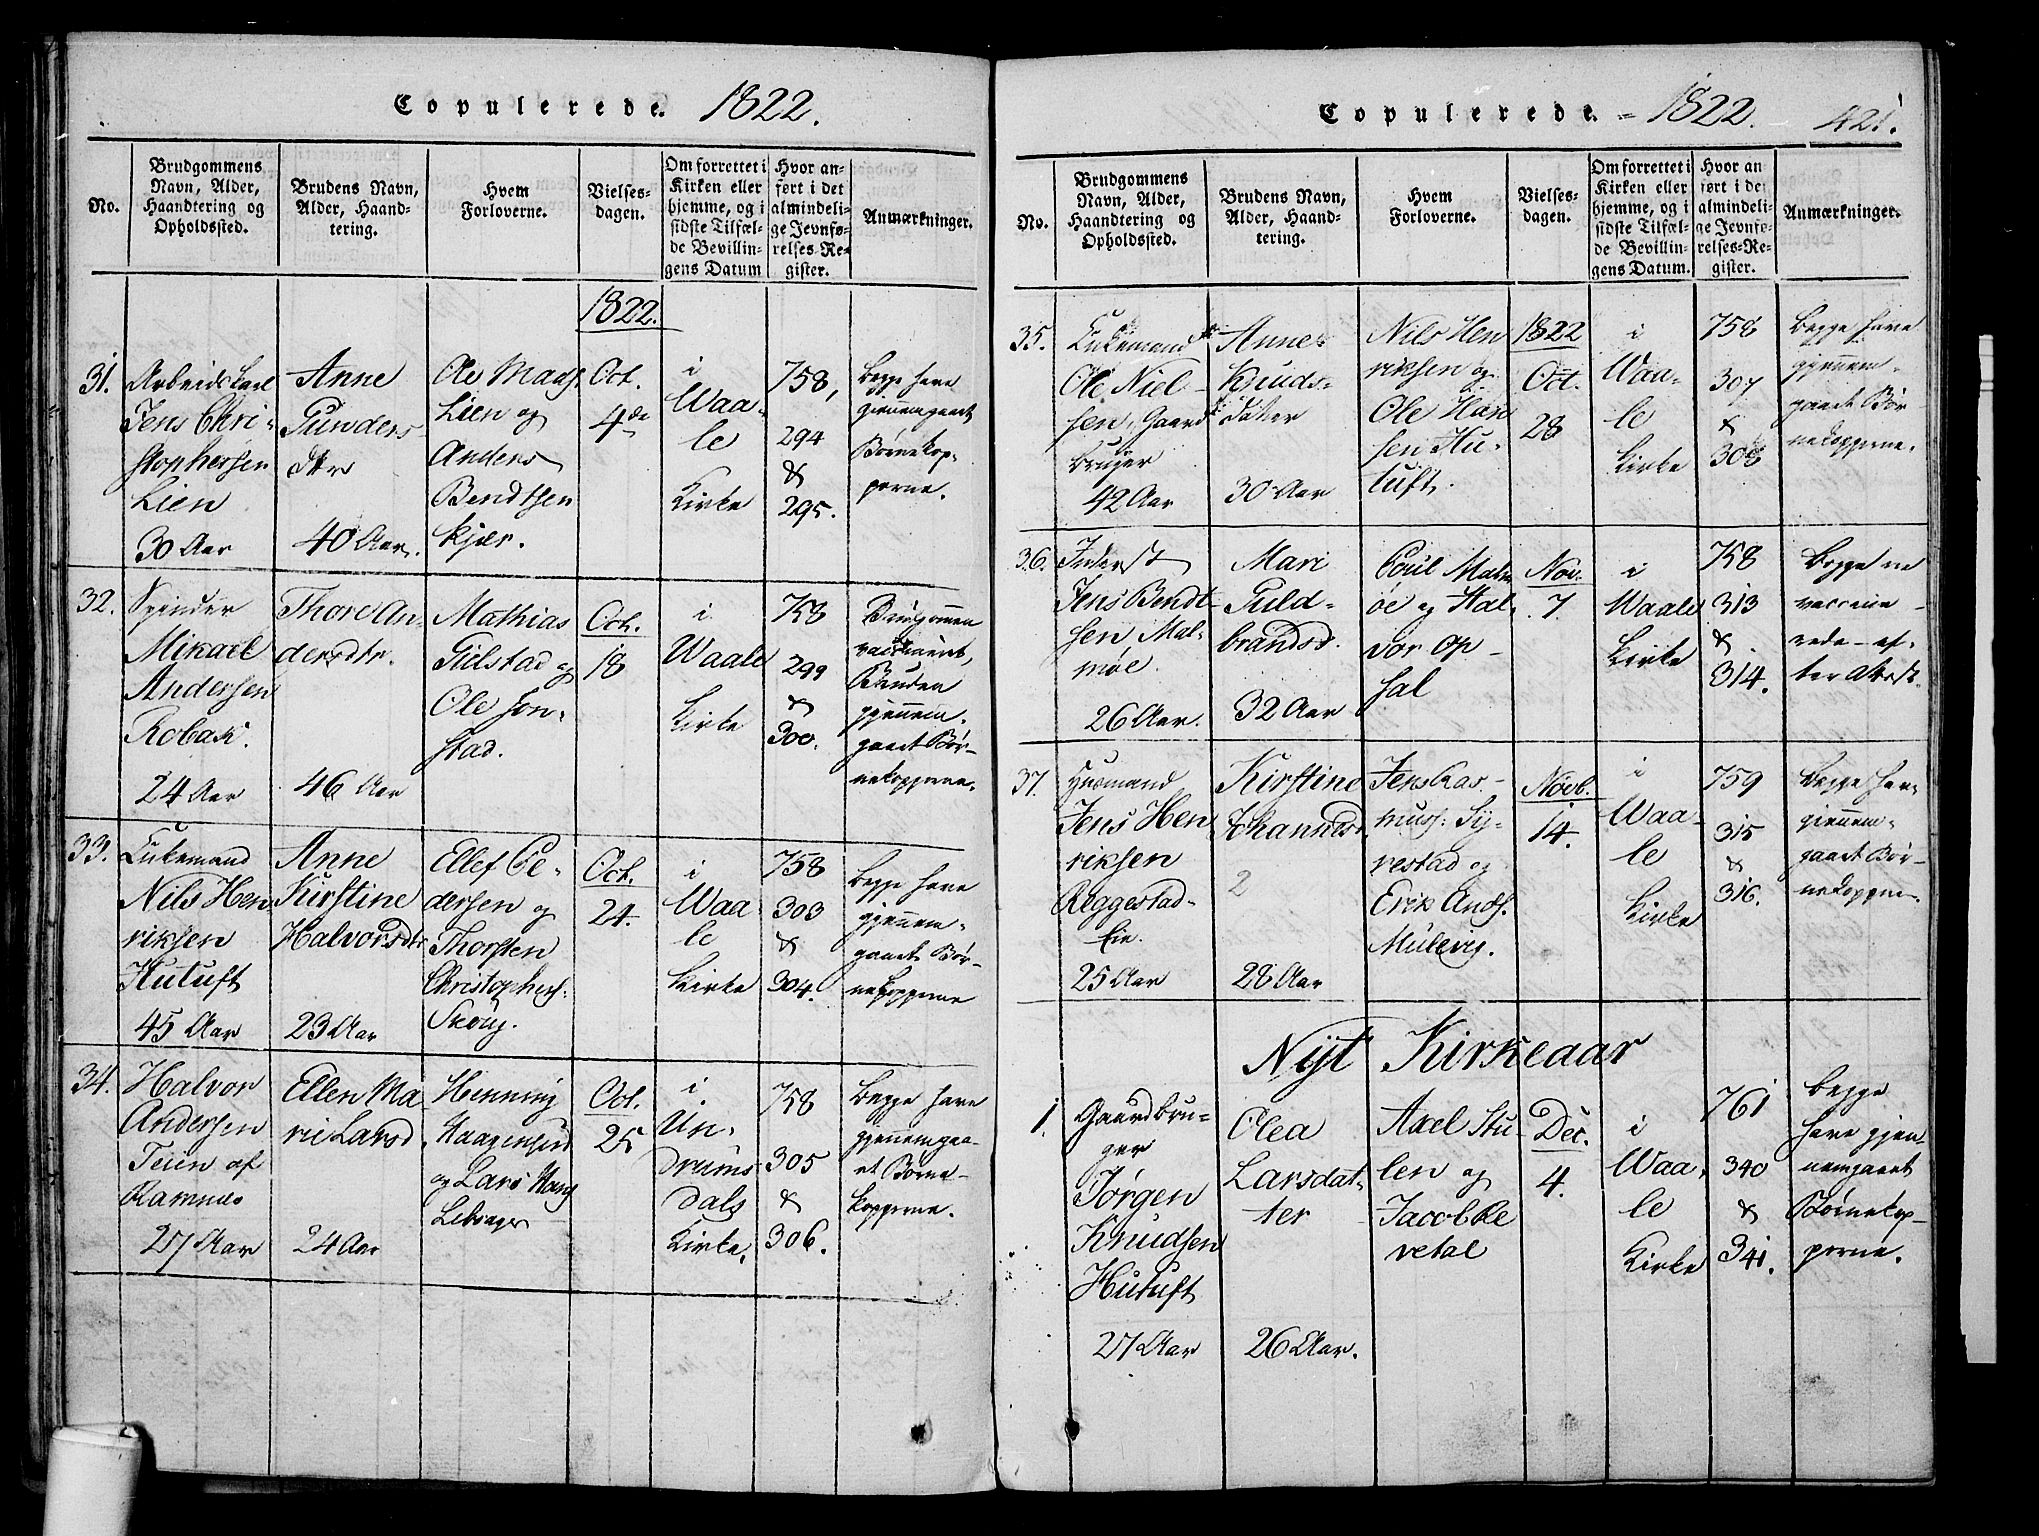 Copulerede. 1822.
No.
Brudgommens
Navn, Alder,
Haandtering og
Opholdssted.
Brudens Navn,
Alder, Haand-
tering.
Hvem
Forloverne.
Vielses-
dagen.
Om forrettet i
Kirken eller
hjemme, og i
sidste Tilfæl-
de Bevillin-
gens Datum
Hvor an-
ført i det
almindeli-
ge Jevnfø-
relses-Re-
gister.
Anmærkninger.
1822.
31.
Arbeidskarl
Jens Chri-
stophersen
Lien
30 Aar
Anne
Gunders
dtr
40 Aar.
Ole Maas.
Lien og
Anders
Bendtsen
Kjær.
Oct.
4de
i
Waa-
le
Kirke
758,
294
&
295.
Begge have
gjennemgaaet
Børnekop-
perne.
32.
Spinder
Mikael
Andersen
Robak.
24 Aar
Thore An-
dersdtr.
46 Aar
Mathias
Gulstad og
Ole Jon-
stad.
Oct.
18
i
Waale
Kirke
758
299
&
300.
Brudgommen
vaccineret,
Bruden
gjennem-
gaaet Bør-
nekopperne.
33.
Enkemand
Nils Hen-
riksen
Hutuft
45 Aar
Anne
Kirstine
Halvorsdtr
23 Aar
Ellef Pe-
dersen og
Thorsten
Christophers.
Skoug.
Oct.
24.
i
Waa
le
Kirke
758
303
&
304.
Begge have
gjennem-
gaaet Bør-
nekopperne
34.
Halvor
Andersen
Teien af
Ramnæs
27 Aar
Ellen Ma-
rie Larsd
24 Aar
Henning
Haagensen
og Lars Hans
Oct.
25
i
Un-
drums-
dals
Kirke,
758
305
&
306.
Begge have
gjennemgaa-
et Børne-
kopperne.
Copulerede. 1822. 421.
No.
Brudgommens
Navn, Alder,
Haandtering og
Opholdssted.
Brudens Navn,
Alder, Haand-
tering.
Hvem
Forloverne.
Vielses-
dagen.
Om forrettet i
Kirken eller
hjemme, og i
sidste Tilfæl-
de Bevillin-
gens Datum.
Hvor an
ført i det
almindeli-
ge Jevnfø-
relses-Re-
gister.
Anmærkninger.
35.
Enkemand
Ole Niel-
sen, Gaard
bruger
42 Aar
Anne
Knuds-
datter
30 Aar
Nils Hen
riksen og
Ole Han
sen Hu-
tuft.
1822
Oct.
28
i
Waa-
le
Kirke
758
307
&
308
Begge have
gjennem-
gaaet Bør
nekopperne.
36.
Inderst
Jens Bendt-
sen Mal-
møe.
26 Aar.
Mari
Guld-
brandsd.
32 Aar
Poul Malm
øe og Hal-
vor Op-
sal
Nov.
7.
i
Waale
Kirke
758
313
&
314.
Begge ere
vaccine-
rede - ef-
ter Attest.
37.
Husmand
Jens Hen
riksen
Reggestad-
Eie.
25 Aar
Kirstine
Johannesd
2
28 Aar
Jens Ras-
muss. Sy-
restad og
Erik Ands.
Mulevig.
Novb.
14.
i
Waa-
le
Kirke
759
315
&
316.
Begge have
gjennem-
gaaet Bør-
nekopperne.
Nyt Kirkeaar
1.
Gaardbru-
ger
Jørgen
Knudsen
Hutuft
27 Aar
Olea
Larsdat-
ter
26 Aar.
Axel Stu-
len og
Jacob Re
vetal
Dec.
4.
i
Waa-
le
Kirke
761
340
&
341.
Begge
have gjen-
nemgaaet
Børnekop-
perne.